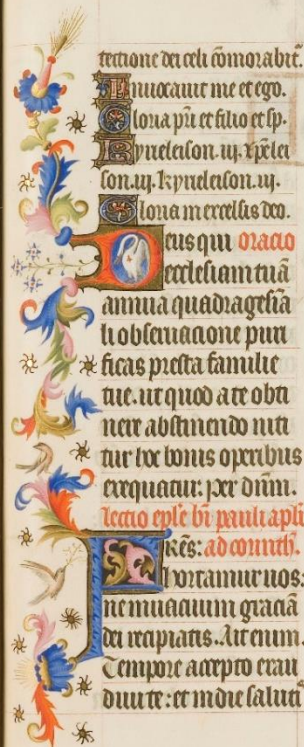 tectione dei celi comorabit̃.
Inuocauit me et ego.
Gloria p̃ri et filio et sp̃.
Kyrieleison. iij. Xp̃elei
son. iij. kyrieleison. iij.
Gloria in excelsis deo.
Deus qui oracio
ecclesiam tuã
annua quadragesĩa
li obseruacione puri
ficas presta familie
tue. ut quod a te obti
nere abstinendo niti
tur hoc bonis operibus
exequatur. per dñm.
lectio epl̃e bĩ pauli apl̃i
FRẽs: ad corinth̃.
hortamur uos:
ne in uacuum graciã
dei recipiatis. Ait enim.
Tempore accepto exau
diui te: et in die saluti